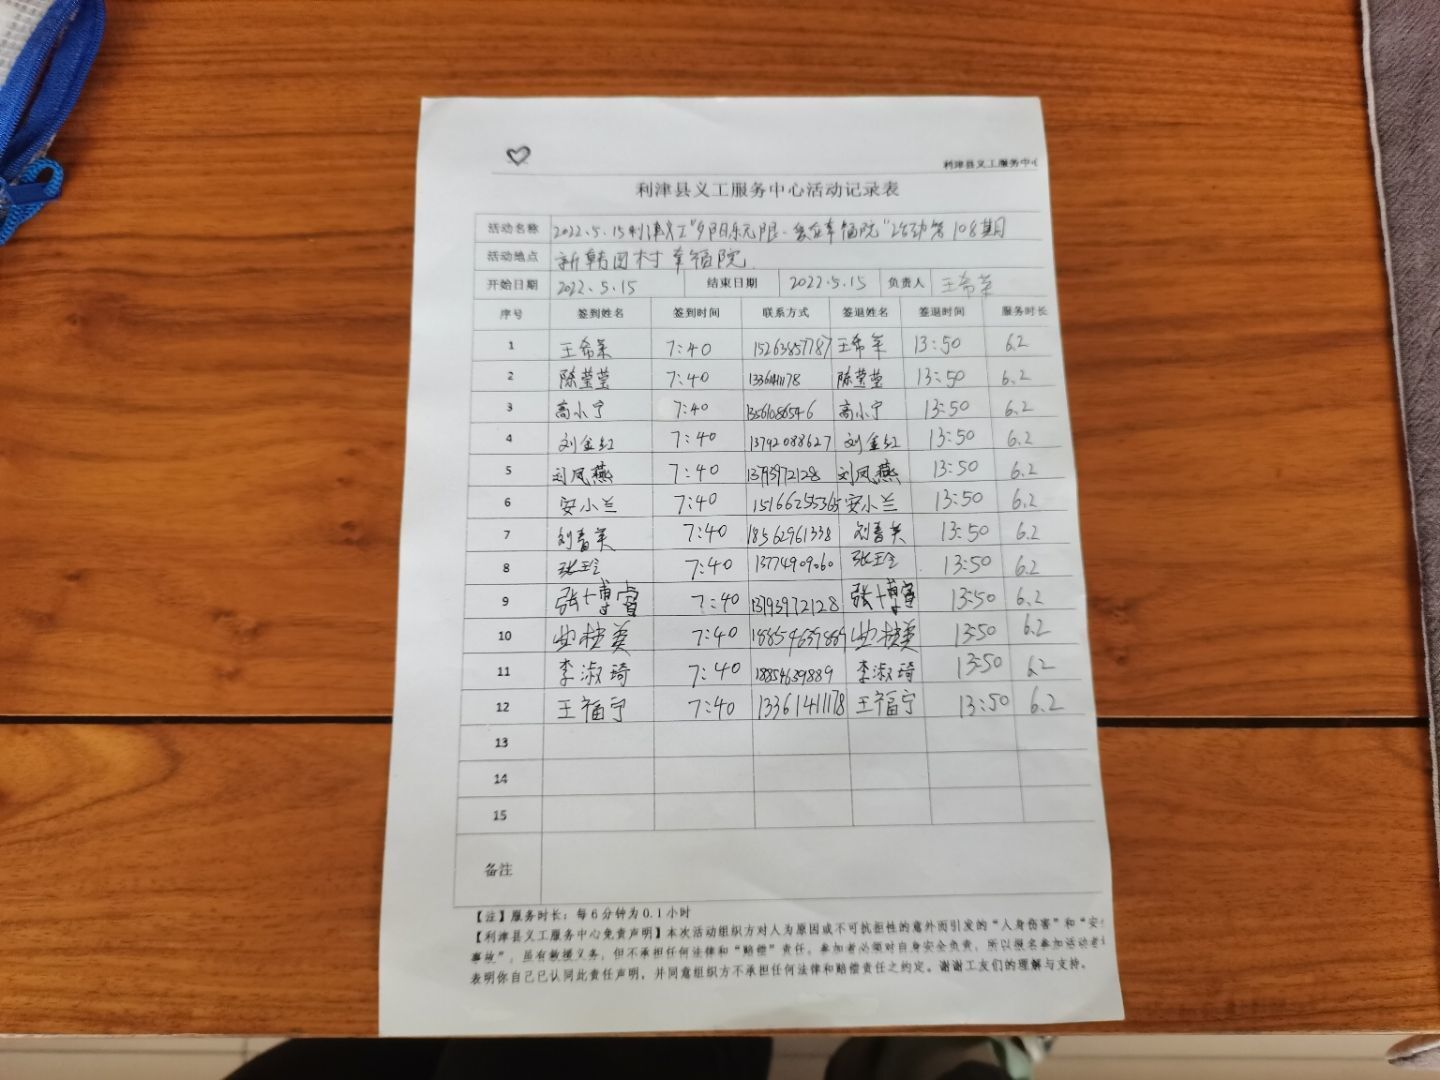 利津县义工服务中心
利津县义工服务中心活动记录表
活动名称 2022.5.15利津义工"夕阳乐无限·爱在幸福院"活动第108期
活动地点 新韩田村幸福院
开始日期 2022.5.15 结束日期 2022.5.15 负责人 王希荣
序号 签到姓名 签到时间 联系方式 签退姓名 签退时间 服务时长
1 王希荣 7:40 15263857787 王希荣 13:50 6.2
2 陈莹莹 7:40 陈莹莹 13:50 6.2
3 高小宁 7:40 13561086546 高小宁 13:50 6.2
4 刘金红 7:40 13792088627 刘金红 13:50 6.2
5 刘凤燕 7:40 13793972128 刘凤燕 13:50 6.2
6 安小兰 7:40 15166255365 安小兰 13:50 6.2
7 刘春美 7:40 18562961338 刘春美 13:50 6.2
8 张玉玲 7:40 13774909060 张玉玲 13:50 6.2
9 张博睿 7:40 13793972128 张博睿 13:50 6.2
10 7:40 18854639889 13:50 6.2
11 李淑琦 7:40 18854639889 李淑琦 13:50 6.2
12 王福宁 7:40 13361411178 王福宁 13:50 6.2
13
14
15
备注
【注】服务时长：每6分钟为0.1小时
【利津县义工服务中心免责声明】本次活动组织方对人为原因或不可抗拒性的意外而引发的“人身伤害”和“安
事故”，虽有救援义务，但不承担任何法律和“赔偿”责任。参加者必须对自身安全负责，所以报名参加活动者
表明你自己已认同此责任声明，并同意组织方不承担任何法律和赔偿责任之约定。谢谢工友们的理解与支持。